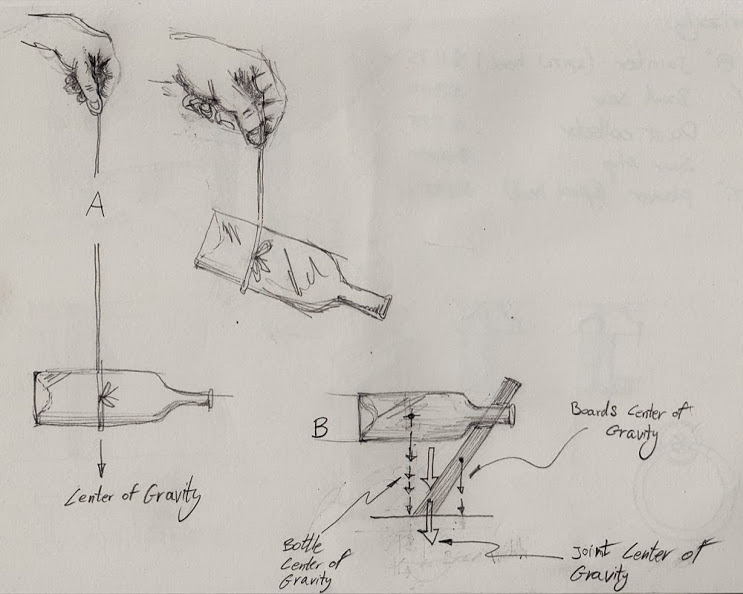 A
Center of Gravity
B
Boards Center of
Gravity
Bottle
Center of
Gravity
Joint Center of
Gravity